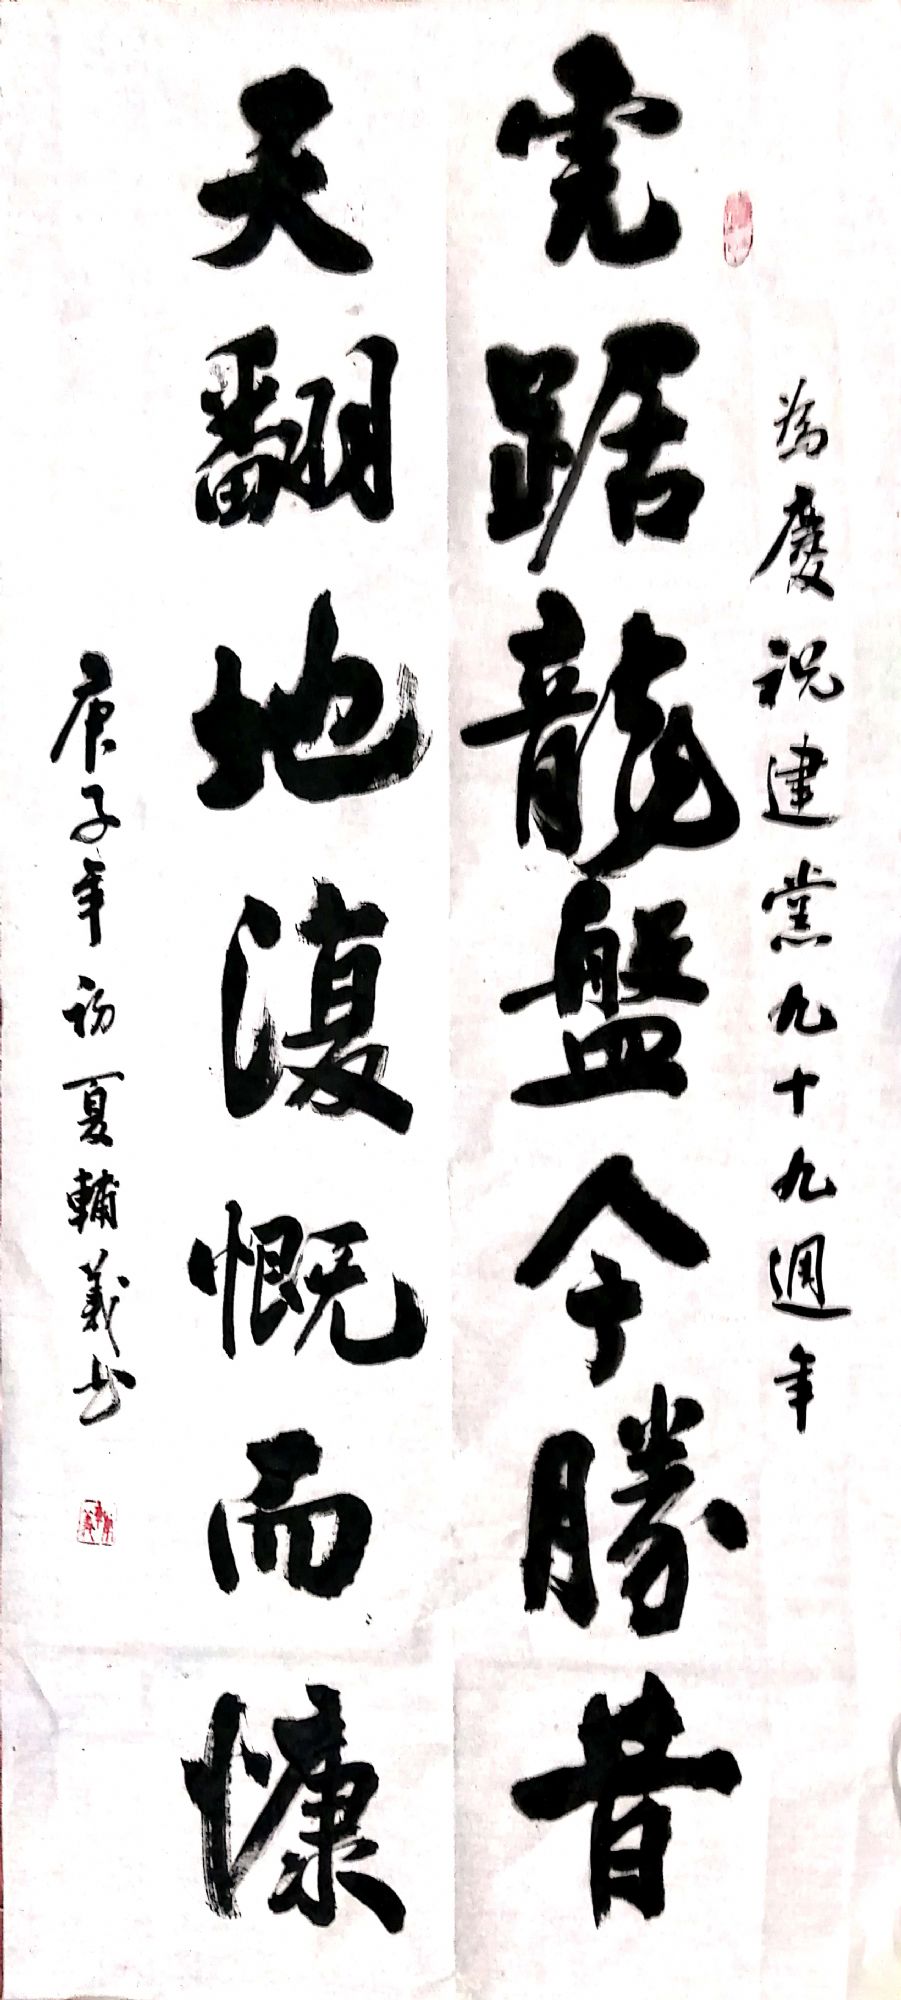 為慶祝建黨九十九週年
虎踞龍盤今勝昔
天翻地復慨而慷
庚子年初夏輔義书